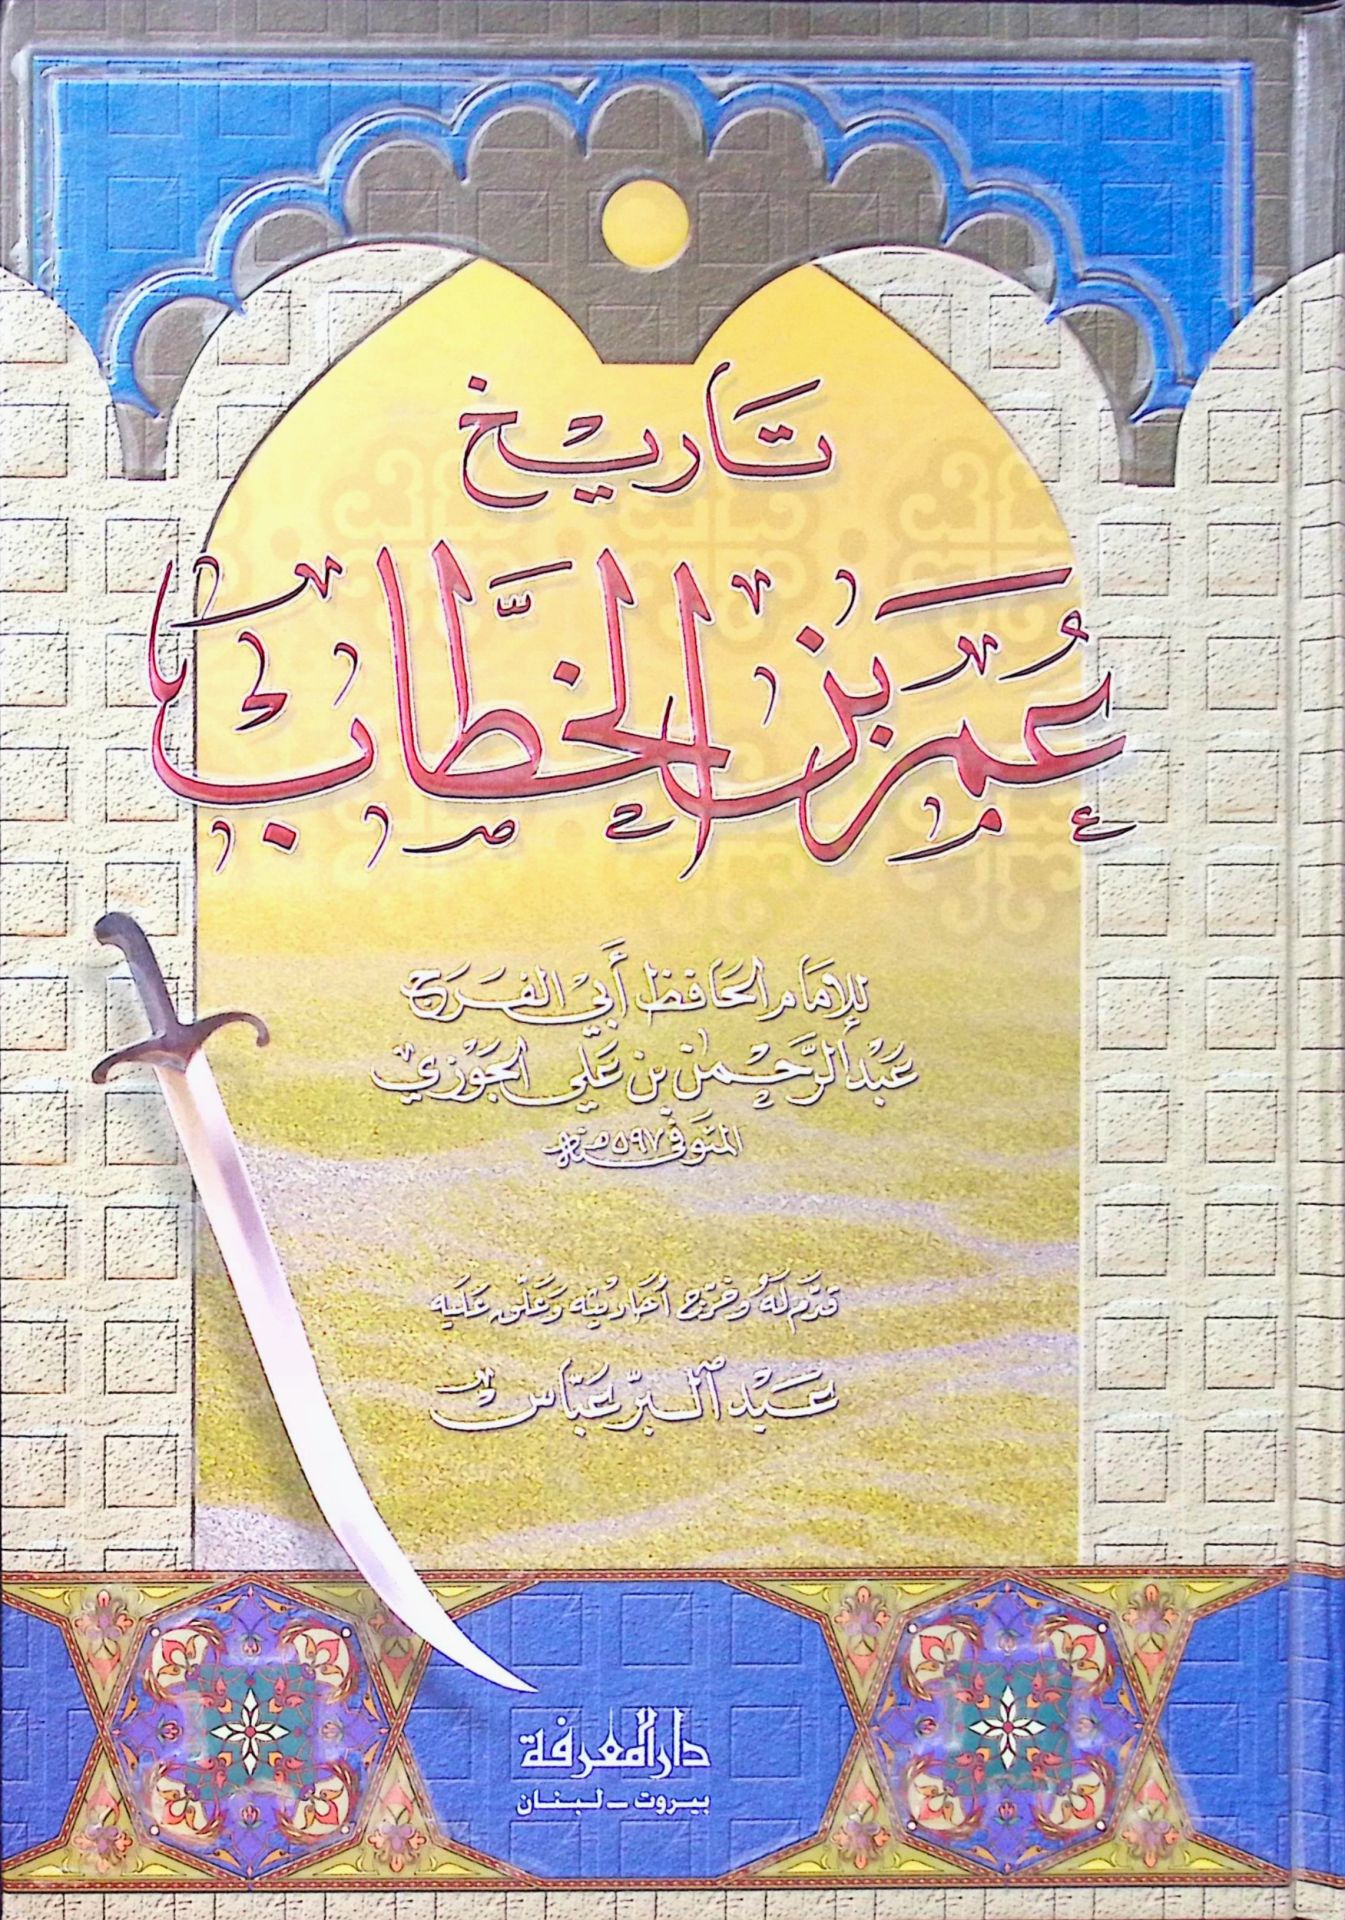 تاريخ
عُمَر بن الخطَّاب
للإمام الحافظ أبي الفرج
عَبْد الرَّحْمن بن عَلي الجَوْزي
المتوفى سنة ٥٩٧ هـ
قدَّم لهُ وخرّج أحاديثه وعَلّق عَليه
عَبْد البرّ عبّاس
دار المعرفة
بيروت - لبنان